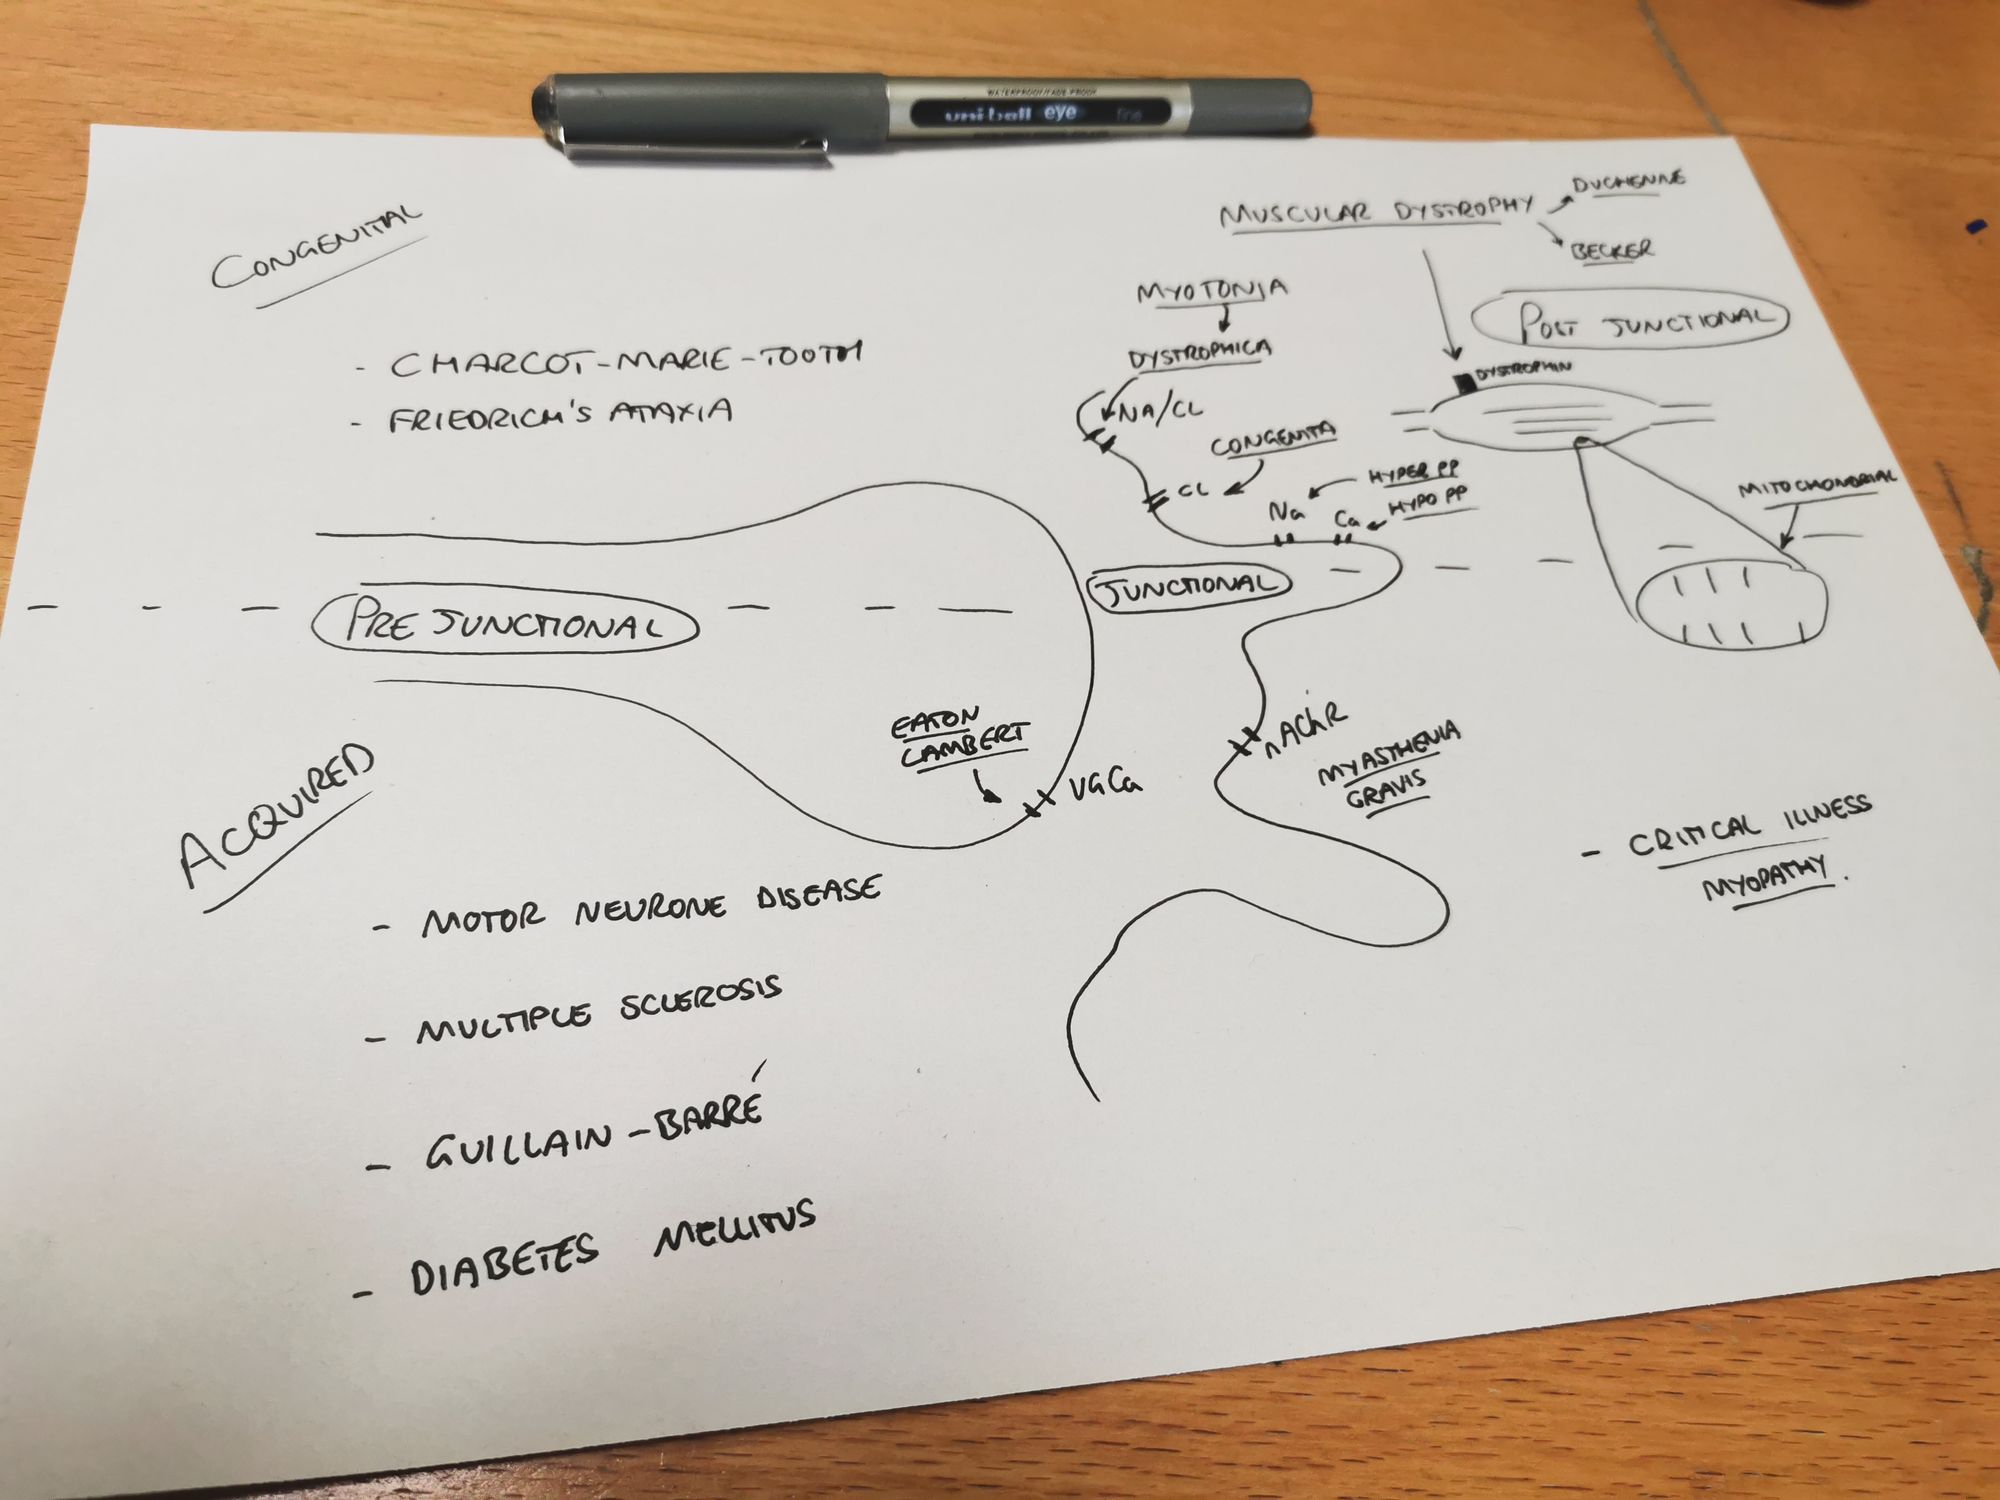 WATERPROOF/FADE-PROOF
uni-ball eye fine
CONGENITAL
- CHARCOT-MARIE-TOOTH
- FRIEDRICH'S ATAXIA
MUSCULAR DYSTROPHY
DUCHENNE
BECKER
MYOTONIA
DYSTROPHICA
NA/CL
CONGENITA
CL
HYPER PP
Na
HYPO PP
Ca
POST JUNCTIONAL
DYSTROPHIN
MITOCHONDRIAL
PRE JUNCTIONAL
JUNCTIONAL
EATON
LAMBERT
VGCa
nAChR
MYASTHENIA
GRAVIS
- CRITICAL ILLNESS
MYOPATHY.
ACQUIRED
- MOTOR NEURONE DISEASE
- MULTIPLE SCLEROSIS
- GUILLAIN-BARRÉ
- DIABETES MELLITUS